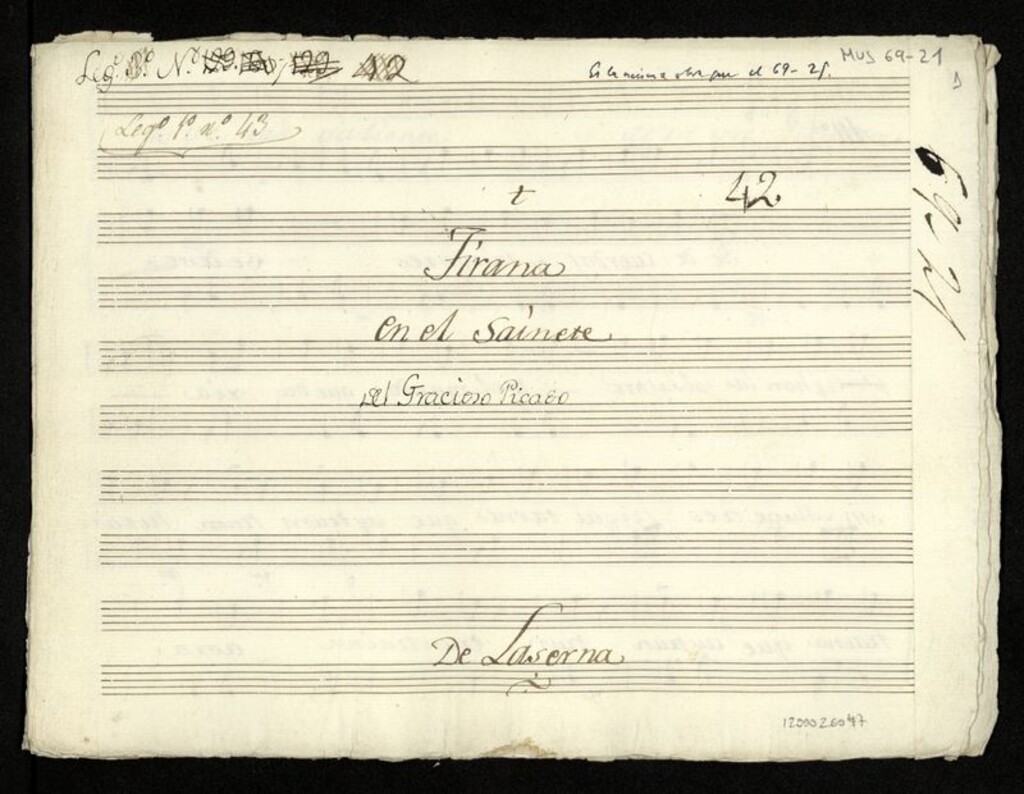 Leg.º 3.º N.º 42
Es la misma obra que el 69-25.
MUS 69-21
1
Leg.º 1.º n.º 43
t
42
Tirana
en el Sainete
del Gracioso Picado
De Laserna
69 21
1200026047